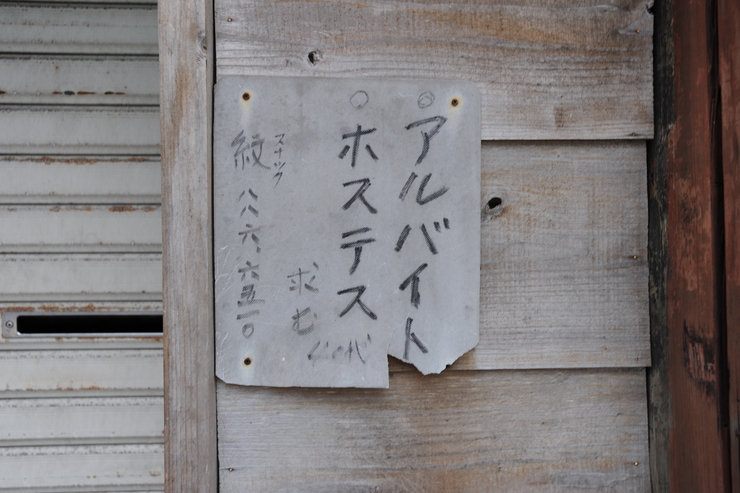 ◎アルバイト
○ホステス
求む
スナック
紋 八八六、六五一〇